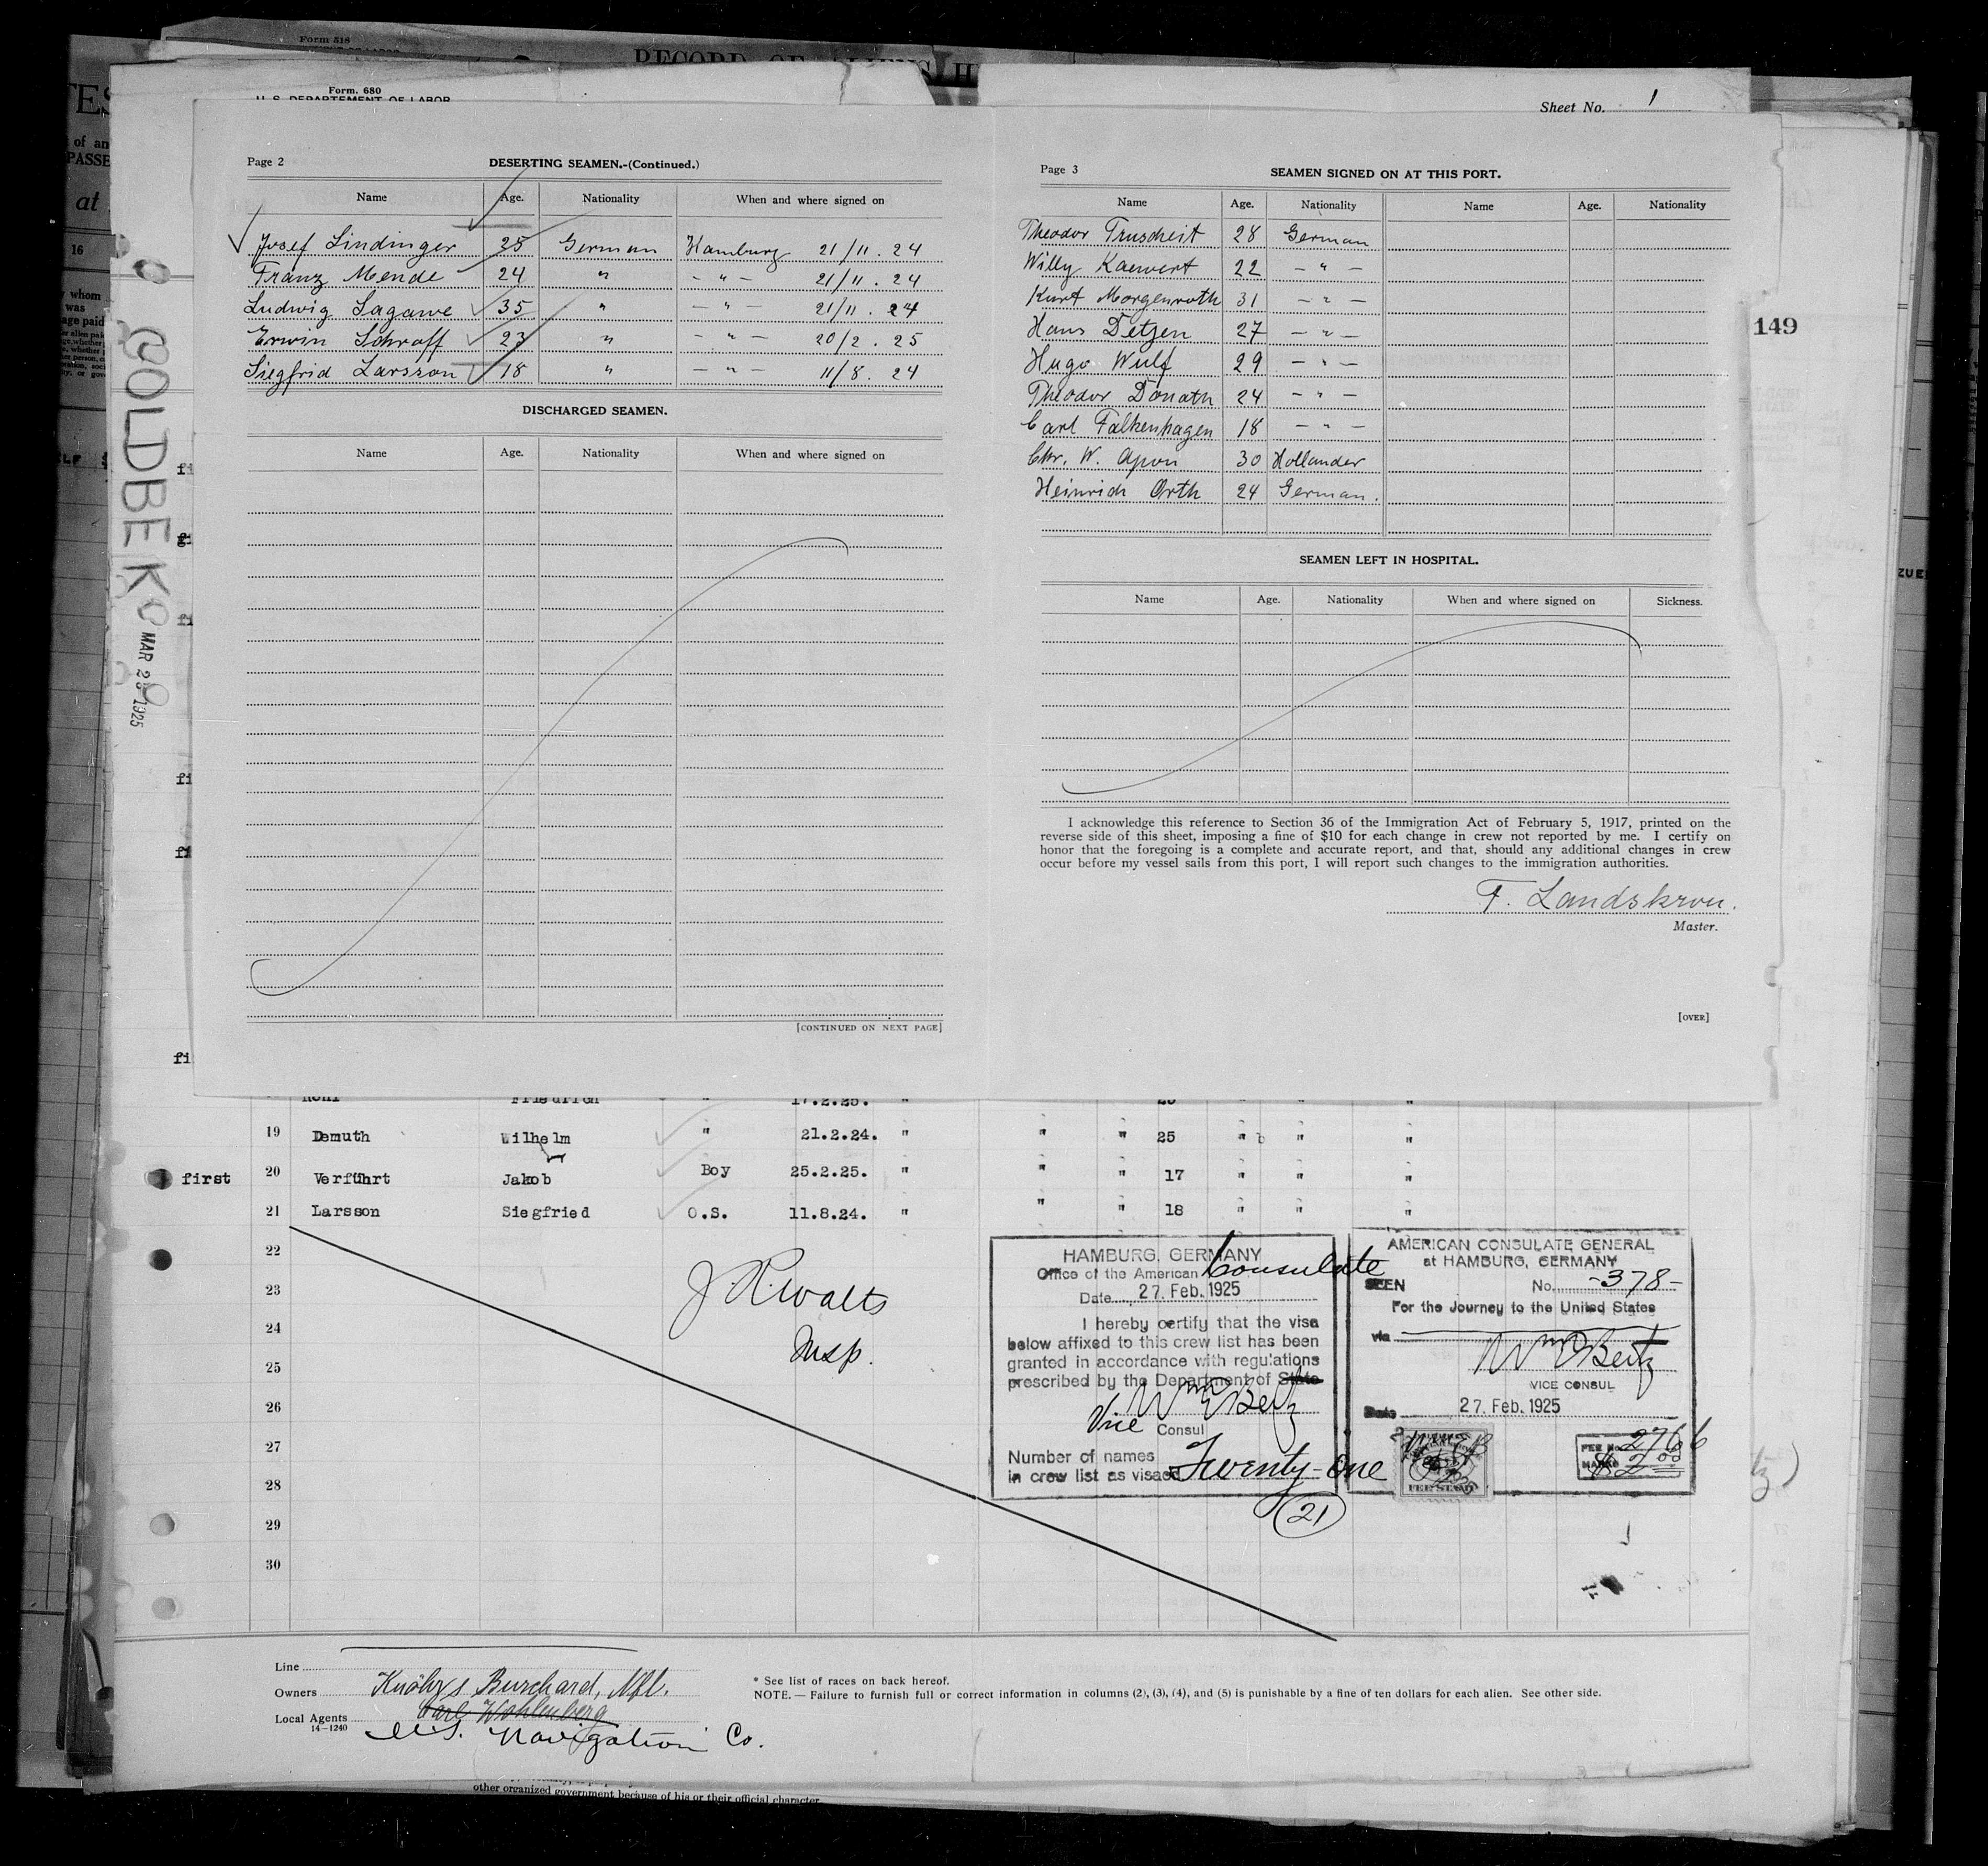 Form 518
RECORD OF ALIENS H
Form. 680
U. S. DEPARTEMENT OF LABOR
Sheet No. 1
TES
of an
PASSE
at
16
whom
was
age paid
149
GOLDBEK
MAR 2 1925
Page 2
DESERTING SEAMEN.-(Continued.)
Name Age. Nationality When and where signed on
Josef Lindinger 25 German Hamburg 21/11. 24
Franz Mende 24 " - " - 21/11. 24
Ludwig Sagawe 35 " - " - 21/11. 24
Erwin Schroff 23 " - " - 20/2. 25
Siegfrid Larsson 18 " - " - 11/8. 24
DISCHARGED SEAMEN.
Name Age. Nationality When and where signed on
[CONTINUED ON NEXT PAGE]
Page 3
SEAMEN SIGNED ON AT THIS PORT.
Name Age. Nationality Name Age. Nationality
Theodor Truscheit 28 German
Willy Kaewert 22 - " -
Kurt Morgenroth 31 - " -
Hans Detzen 27 - " -
Hugo Wulf 29 - " -
Theodor Donath 24 - " -
Carl Falkenhagen 18 - " -
Chr. W. Apon 30 Hollander
Heinrich Orth 24 German.
SEAMEN LEFT IN HOSPITAL.
Name Age. Nationality When and where signed on Sickness.
I acknowledge this reference to Section 36 of the Immigration Act of February 5, 1917, printed on the
reverse side of this sheet, imposing a fine of $10 for each change in crew not reported by me. I certify on
honor that the foregoing is a complete and accurate report, and that, should any additional changes in crew
occur before my vessel sails from this port, I will report such changes to the immigration authorities.
F. Landskron.
Master.
[OVER]
Friedrich " 17.2.25. "
19 Demuth Wilhelm " 21.2.24. " " " 25 " " "
first 20 Verführt Jakob Boy 25.2.25. " " " 17 " " "
21 Larsson Siegfried O.S. 11.8.24. " " " 18 " " "
22
23
24
25
26
27
28
29
30
J. R. Walts
Insp.
HAMBURG, GERMANY
Office of the American Consulate
Date 27. Feb. 1925
I hereby certify that the visa
below affixed to this crew list has been
granted in accordance with regulations
prescribed by the Department of State
Wm E Beitz
Vice Consul
Number of names
in crew list as visaed Twenty-one
21
AMERICAN CONSULATE GENERAL
at HAMBURG, GERMANY
SEEN No. -378-
For the Journey to the United States
via
Wm E Beitz
VICE CONSUL
Date 27. Feb. 1925
W.E.B
FEE STAMP
FEE No. 2766
MARKS $ 2 00
Line
Owners Knöhr & Burchard, Nfl.
Local Agents Carl Wohlenberg
14-1240
U.S. Navigation Co.
* See list of races on back hereof.
NOTE. — Failure to furnish full or correct information in columns (2), (3), (4), and (5) is punishable by a fine of ten dollars for each alien. See other side.
other organized government because of his or their official character